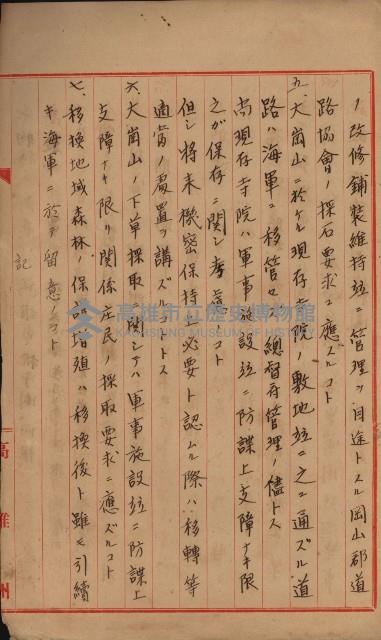 ノ改修鋪装維持竝ニ管理ヲ目途トスル岡山郡道
路協會ノ採石要求ニ應ズルコト
五、大崗山ニ於ケル現存寺院ノ敷地竝ニ之ニ通ズル道
路ハ海軍ニ移管セズ總督府管理ノ儘トス
尚現存寺院ハ軍事施設竝ニ防諜上支障ナキ限
之ガ保存ニ関シ考慮スルコト
但シ將来機密保持上必要ト認ムル際ハ移轉等
適當ノ處置ヲ講ズルコトトス
六、大崗山ノ下草採取ニ関シテハ軍事施設竝ニ防諜上
支障ナキ限リ関係庄民ノ採取要求ニ應ズルコト
七、移換地域森林ノ保護增殖ハ移換後ト雖モ引續
キ海軍ニ於テ留意ノコト
記
高雄州
高雄市立歷史博物館
KAOHSIUNG MUSEUM OF HISTORY